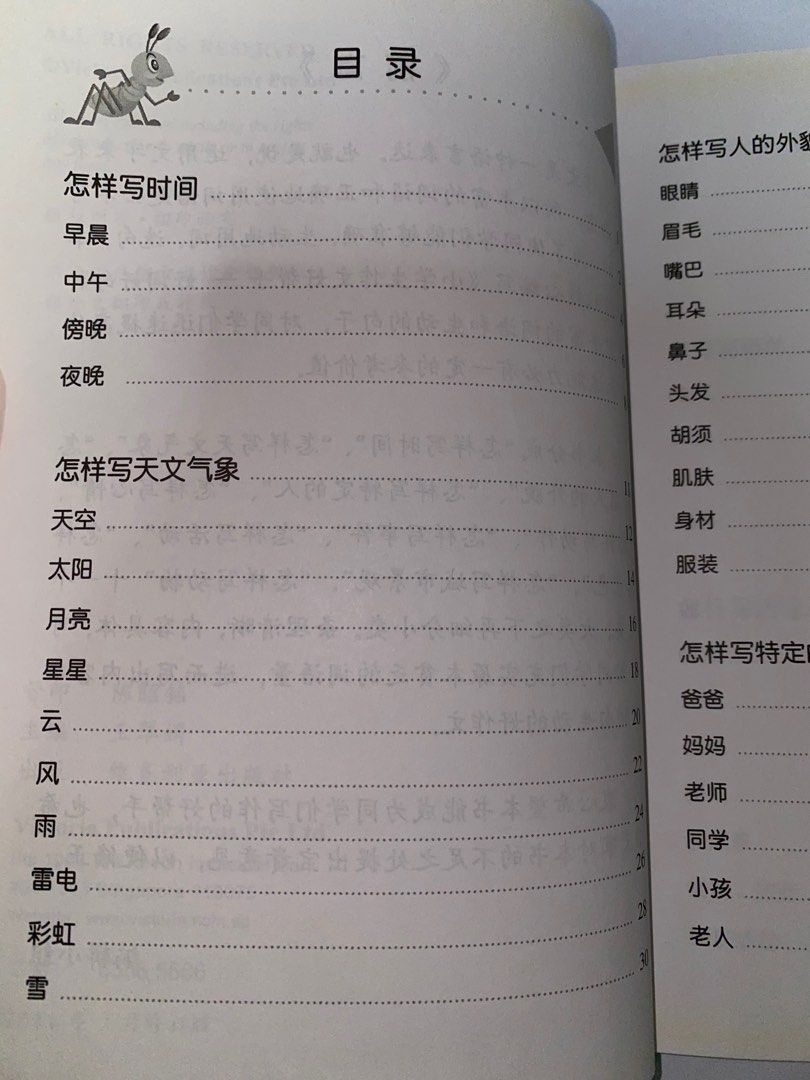 目录
怎样写时间 1
早晨 2
中午 4
傍晚 6
夜晚 8
怎样写天文气象 11
天空 12
太阳 14
月亮 16
星星 18
云 20
风 22
雨 24
雷电 26
彩虹 28
雪 30
怎样写人的外貌
眼睛
眉毛
嘴巴
耳朵
鼻子
头发
胡须
肌肤
身材
服装
怎样写特定
爸爸
妈妈
老师
同学
小孩
老人